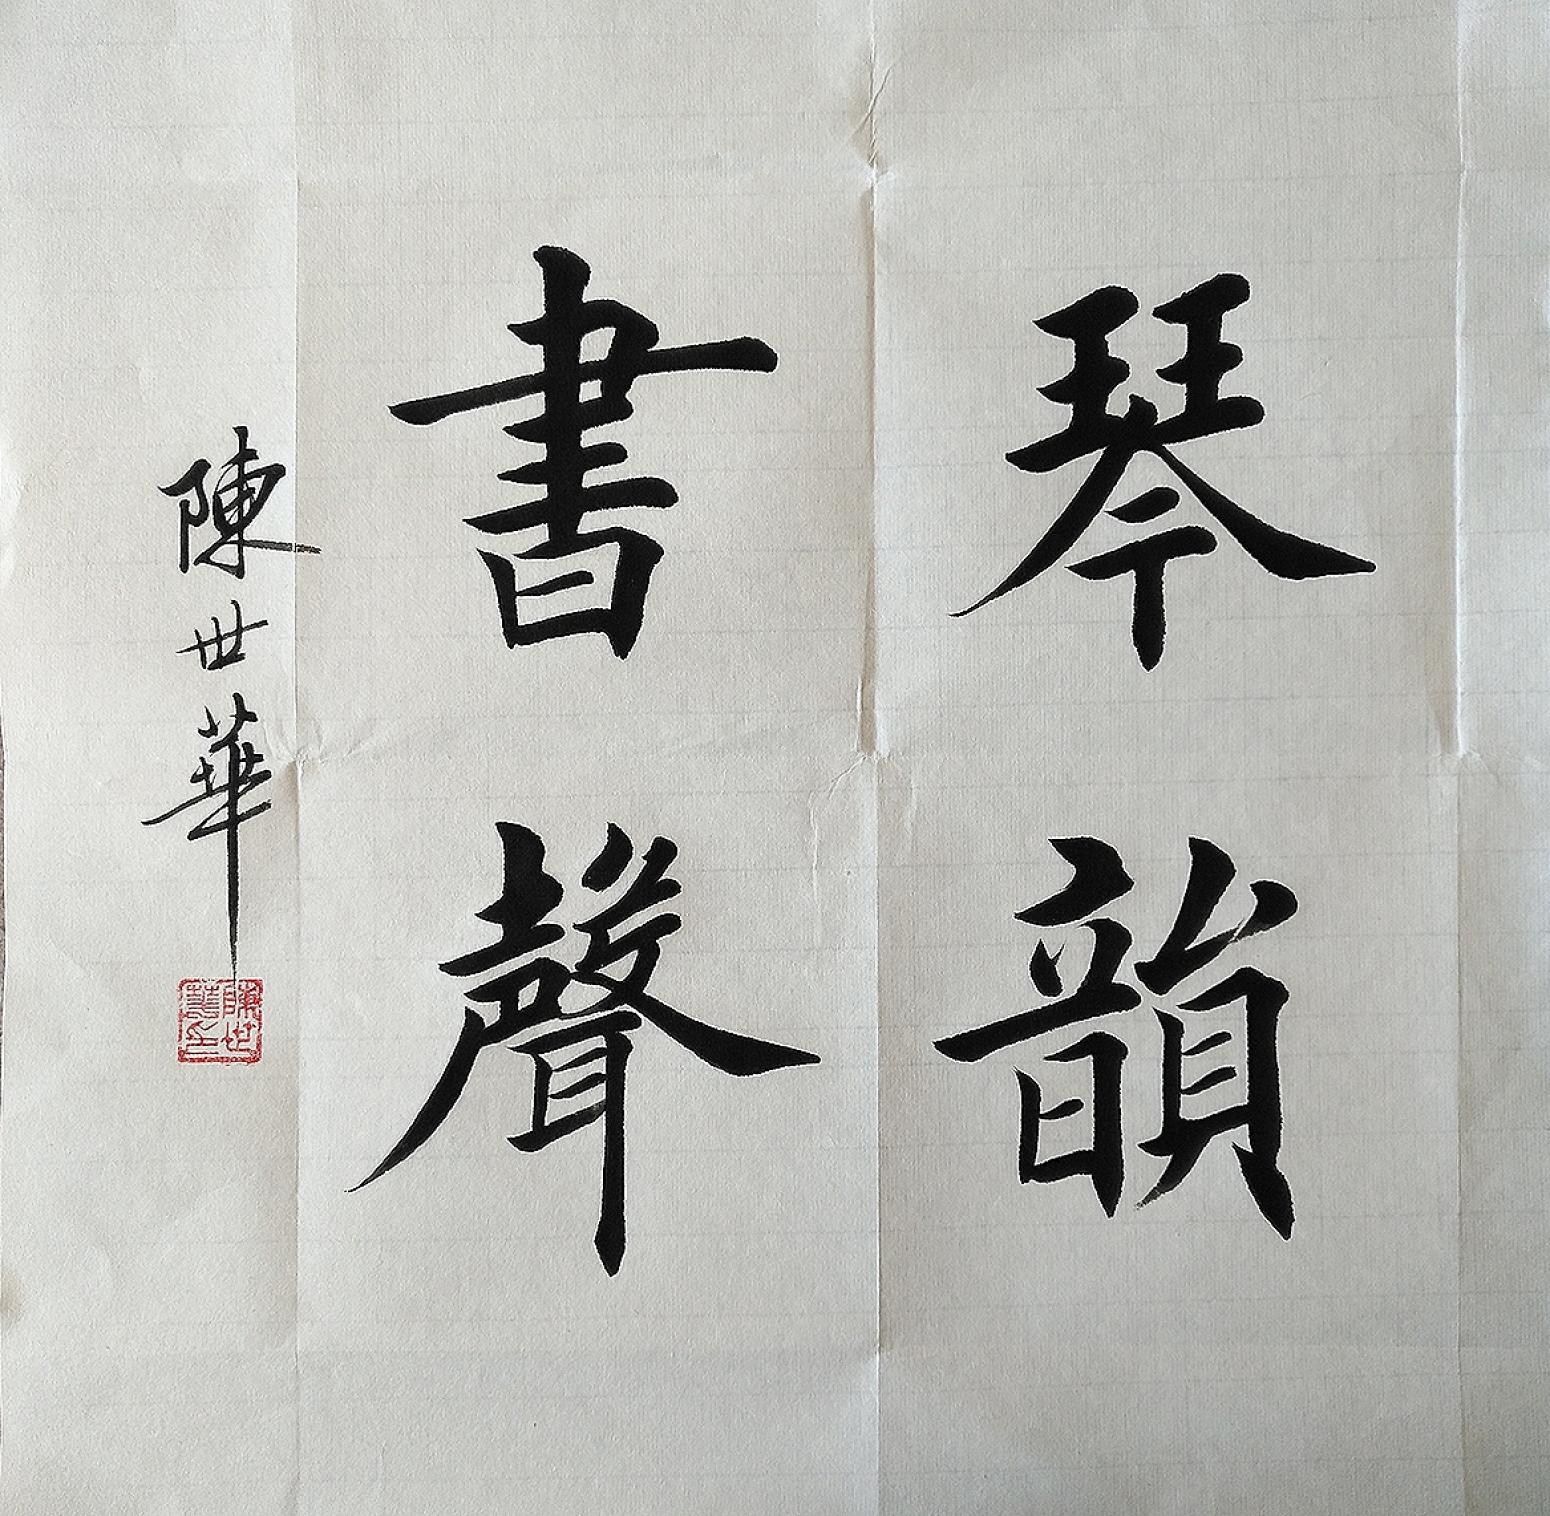 琴韻
書聲
陳世華
陳世華印